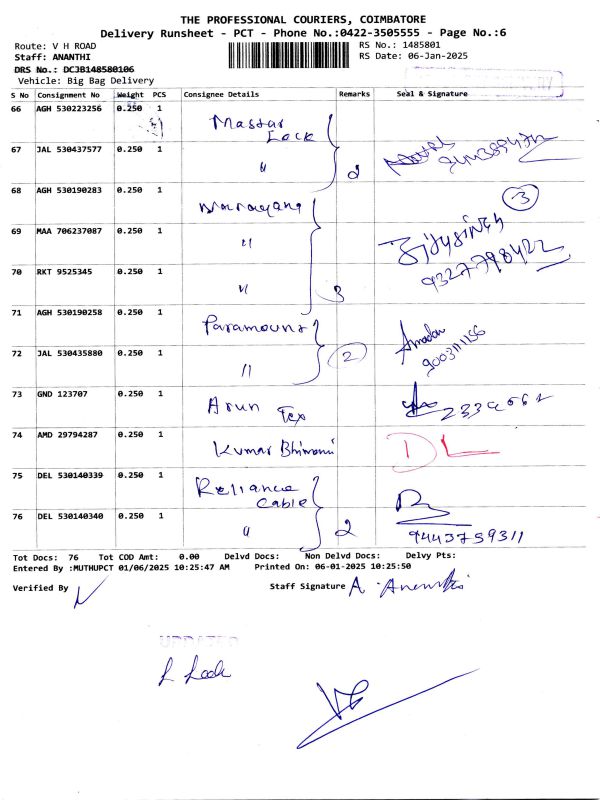 THE PROFESSIONAL COURIERS, COIMBATORE
Delivery Runsheet - PCT - Phone No.:0422-3505555 - Page No.:6
Route: V H ROAD
RS No.: 1485801
Staff: ANANTHI
RS Date: 06-Jan-2025
DRS No.: DCJB148580106
Vehicle: Big Bag Delivery
S No Consignment No Weight PCS Consignee Details Remarks Seal & Signature
66 AGH 530223256 0.250 1 Mastar Lock
67 JAL 530437577 0.250 1 " 2
68 AGH 530190283 0.250 1 Narayana 3
69 MAA 706237087 0.250 1 "
70 RKT 9525345 0.250 1 " 3 9327798422
71 AGH 530190258 0.250 1 Paramount
72 JAL 530435880 0.250 1 " 2 9003111256
73 GND 123707 0.250 1 Arun Tex
74 AMD 29794287 0.250 1 Kumar Bhimani DL
75 DEL 530140339 0.250 1 Reliance Cable
76 DEL 530140340 0.250 1 " 2 9443759311
Tot Docs: 76 Tot COD Amt: 0.00 Delvd Docs: Non Delvd Docs: Delvy Pts:
Entered By :MUTHUPCT 01/06/2025 10:25:47 AM Printed On: 06-01-2025 10:25:50
Verified By Staff Signature A.
UPDATED